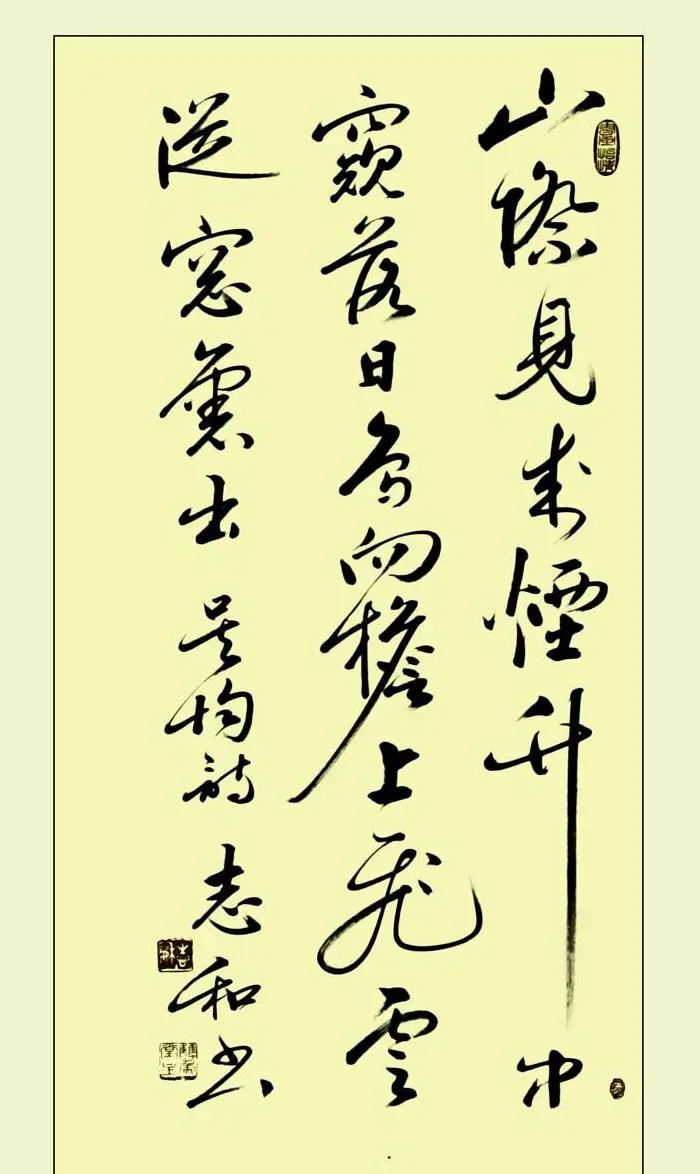 山際見來煙竹中
窺落日鳥向檐上飛雲
從窓裏出 吳均詩 志和書